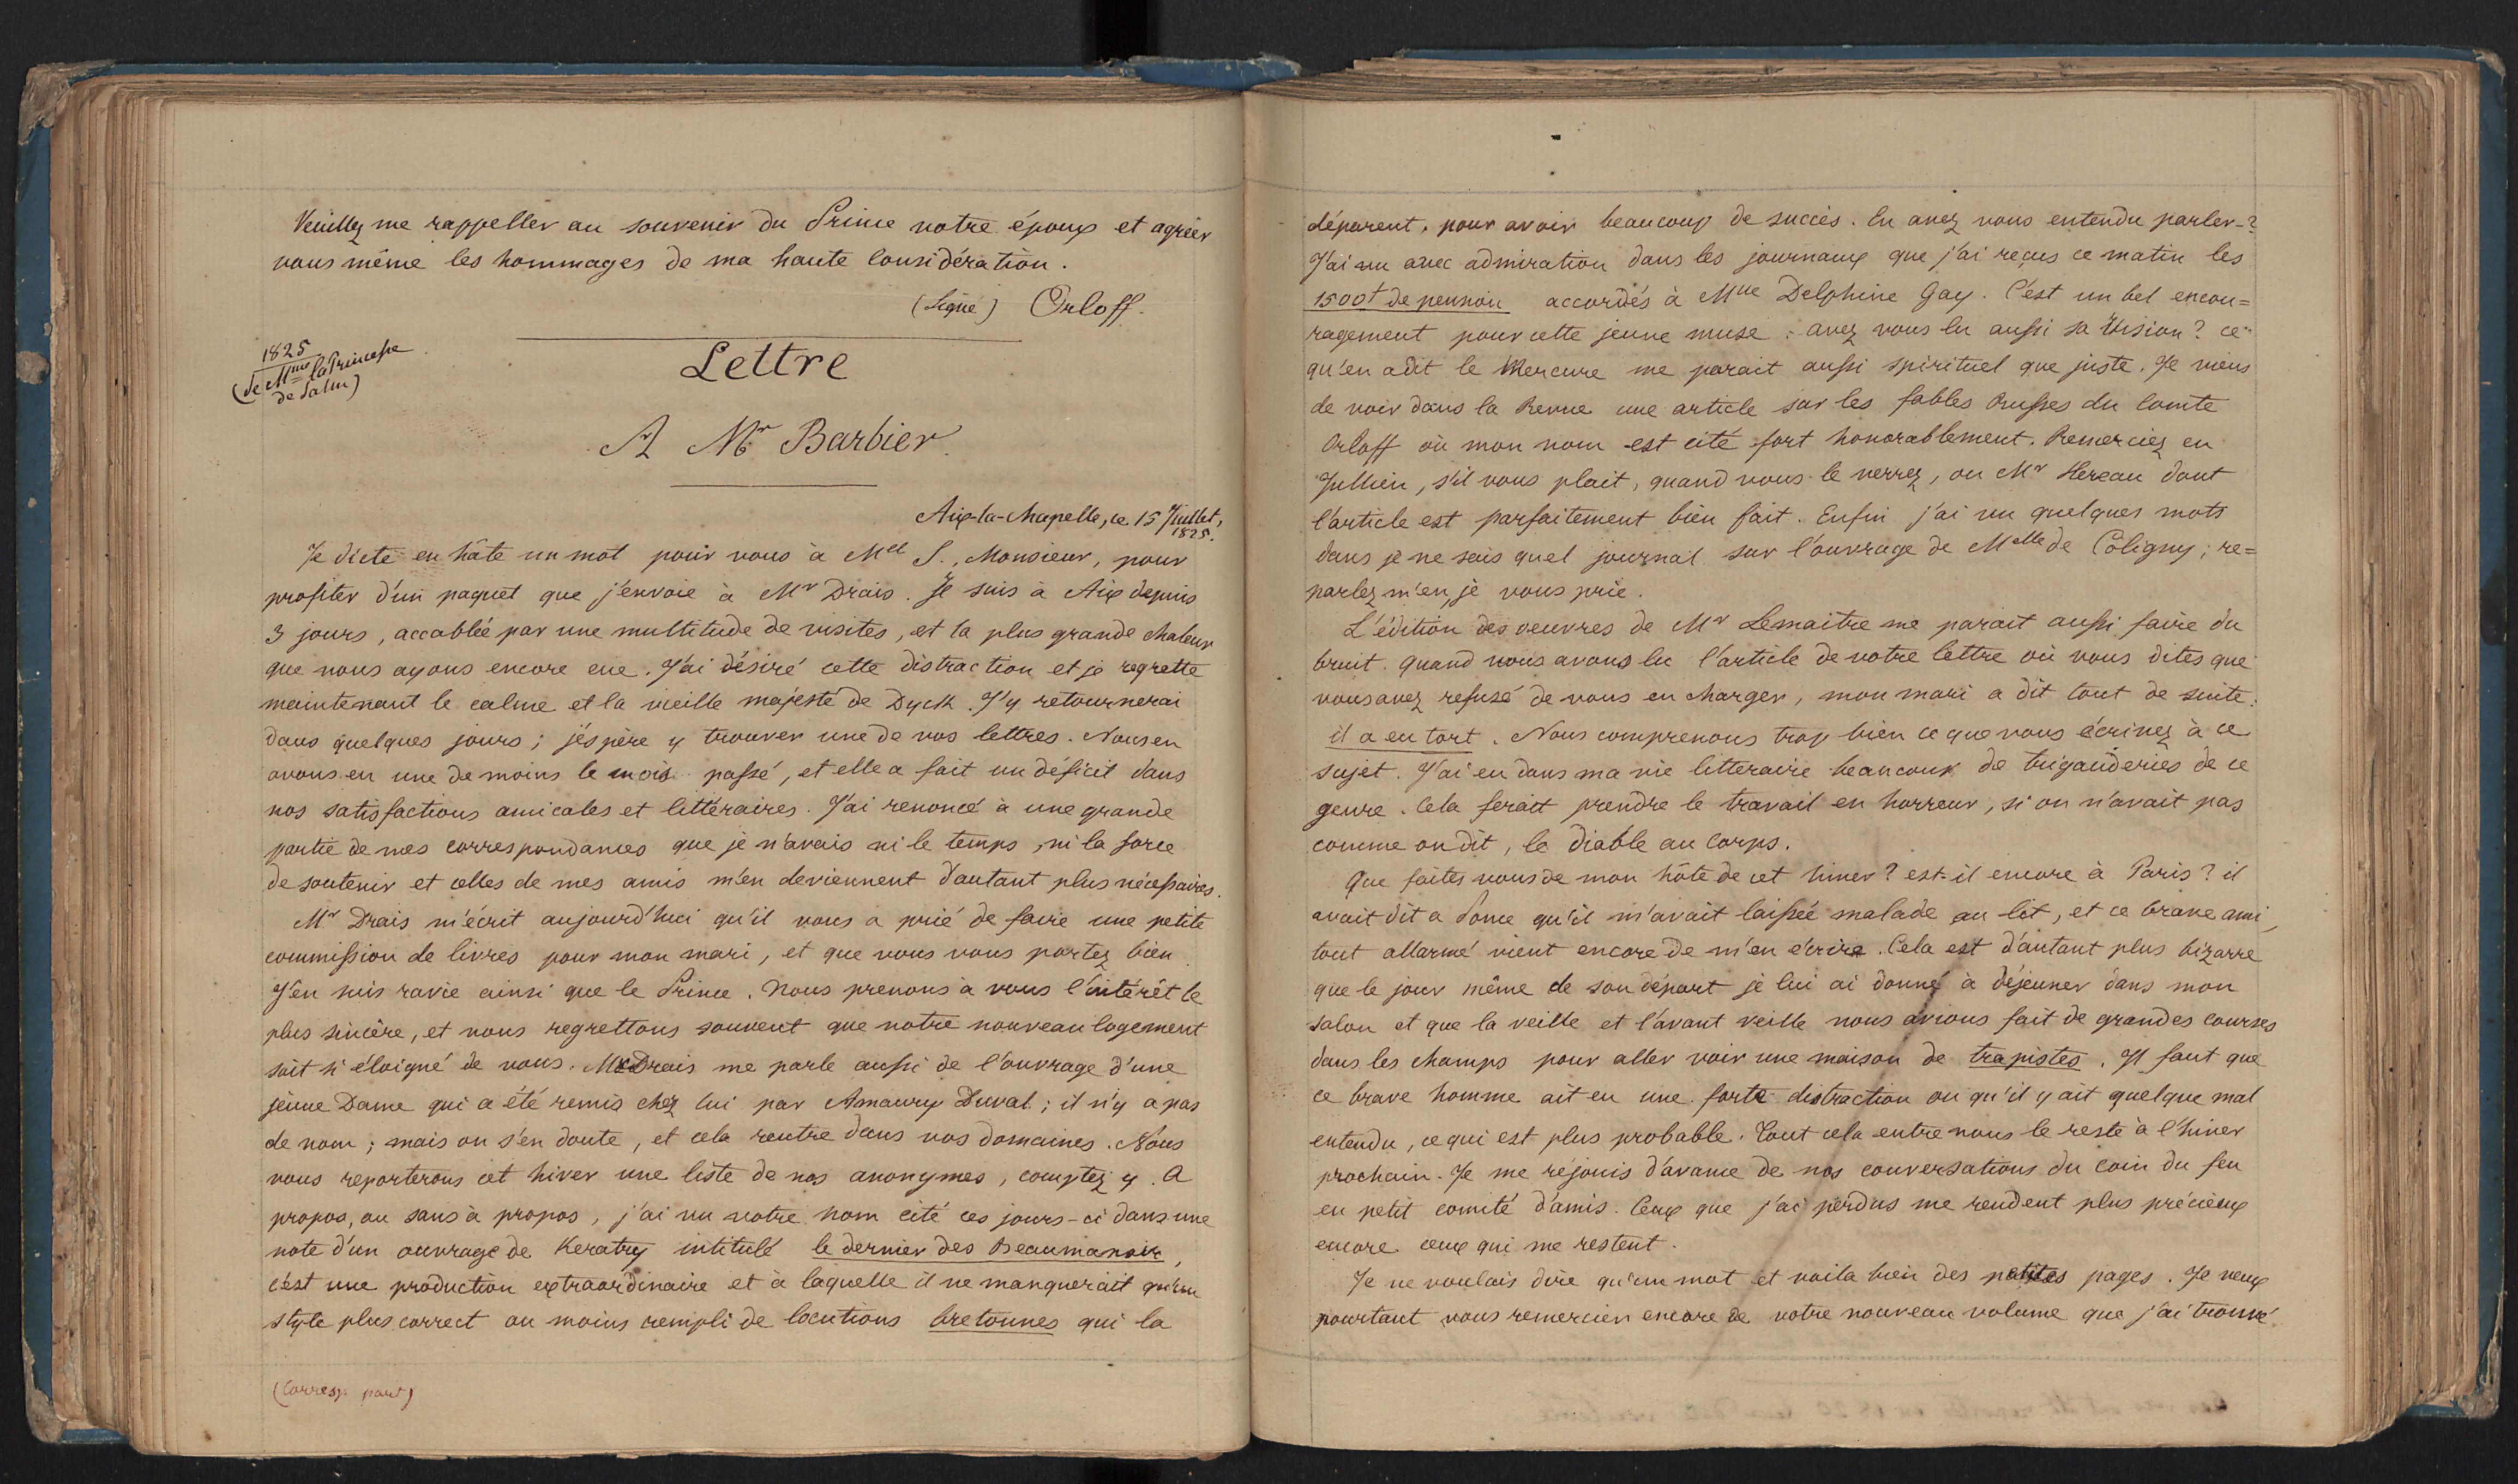 Veuillez me rappeller au souvenir du Prince votre époux et agréer
vous même les hommages de ma haute considération.
(Signé) Orloff.
1825
(de Mme la Princesse
de Salm)
Lettre
A Mr Barbier.
Aix-la-Chapelle, ce 15 Juillet,
1825.
Je dicte en hâte un mot pour vous à Mel S., Monsieur, pour
profiter d'un paquet que j'envoie à Mr Drais. Je suis à Aix depuis
3 jours, accablée par une multitude de visites, et la plus grande chaleur
que nous ayons encore eue. J'ai désiré cette distraction et je regrette
maintenant le calme et la vieille majesté de Dyck. J'y retournerai
dans quelques jours; j'éspère y trouver une de vos lettres. Nous en
avons eu une de moins le mois passé, et elle a fait un déficit dans
nos satisfactions amicales et littéraires. J'ai renoncé à une grande
partie de mes correspondances que je n'avais ni le temps, ni la force
de soutenir et celles de mes amis m'en deviennent d'autant plus nécessaires.
Mr Drais m'écrit aujourd'hui qu'il vous a prié de faire une petite
commission de livres pour mon mari, et que vous vous portez bien.
J'en suis ravie ainsi que le Prince. Nous prenons à vous l'intérêt le
plus sincère, et nous regrettons souvent que notre nouveau logement
soit si éloigné de vous. Mr Drais me parle aussi de l'ouvrage d'une
jeune Dame qui a été remis chez lui par Amaury Duval; il n'y a pas
de nom; mais on s'en doute, et cela rentre dans vos domaines. Nous
vous reporterons cet hiver une liste de nos anonymes, comptez y. A
propos, ou sans à propos, j'ai vu votre nom cité ces jours-ci dans une
note d'un ouvrage de Keratry intitulé le dernier des Beaumanoir,
c'est une production extraordinaire et à laquelle il ne manquerait qu'un
style plus correct ou moins rempli de locutions bretonnes qui la
(Corresp. part)
déparent, pour avoir beaucoup de succès. En avez vous entendu parler-?
J'ai vu avec admiration dans les journaux que j'ai reçus ce matin les
1500f de pension accordés à Mlle Delphine Gay. C'est un bel encou=
ragement pour cette jeune muse: avez vous lu aussi sa Vision? ce
qu'en a dit le Mercure me parait aussi spirituel que juste. Je viens
de voir dans la Revue une article sur les fables Russes du Comte
Orloff où mon nom est cité fort honorablement. Remerciez en
Jullien, s'il vous plait, quand vous le verrez, ou Mr Hereau dont
l'article est parfaitement bien fait. Enfin j'ai vu quelques mots
dans je ne sais quel journal sur l'ouvrage de Melle de Coligny; re=
parlez m'en, je vous prie.
L'édition des oeuvres de Mr Lemaitre me parait aussi faire du
bruit. Quand nous avons lu l'article de votre lettre où vous dites que
vous avez refusé de vous en charger, mon mari a dit tout de suite:
il a eu tort. Nous comprenons trop bien ce que vous écrivez à ce
sujet. J'ai eu dans ma vie litteraire beaucoup de trigauderies de ce
genre. Cela ferait prendre le travail en horreur, si on n'avait pas
comme on dit, le diable au corps.
Que faites vous de mon hôte de cet hiver? est-il encore à Paris? il
avait dit a Pons qu'il m'avait laissée malade au lit, et ce brave ami,
tout allarmé vient encore de m'en écrire. Cela est d'autant plus bizarre
que le jour même de son départ je lui ai donné à déjeuner dans mon
salon et que la veille et l'avant veille nous avions fait de grandes courses
dans les champs pour aller voir une maison de trapistes. Il faut que
ce brave homme ait eu une forte distraction ou qu'il y ait quelque mal
entendu, ce qui est plus probable. Tout cela entre nous le reste à l'hiver
prochain. Je me réjouis d'avance de nos conversations du coin du feu
en petit comité d'amis. Ceux que j'ai perdus me rendent plus précieux
encore ceux qui me restent.
Je ne voulais dire qu'un mot et voila bien des petites pages. Je veux
pourtant vous remercier encore de votre nouveau volume que j'ai trouvé